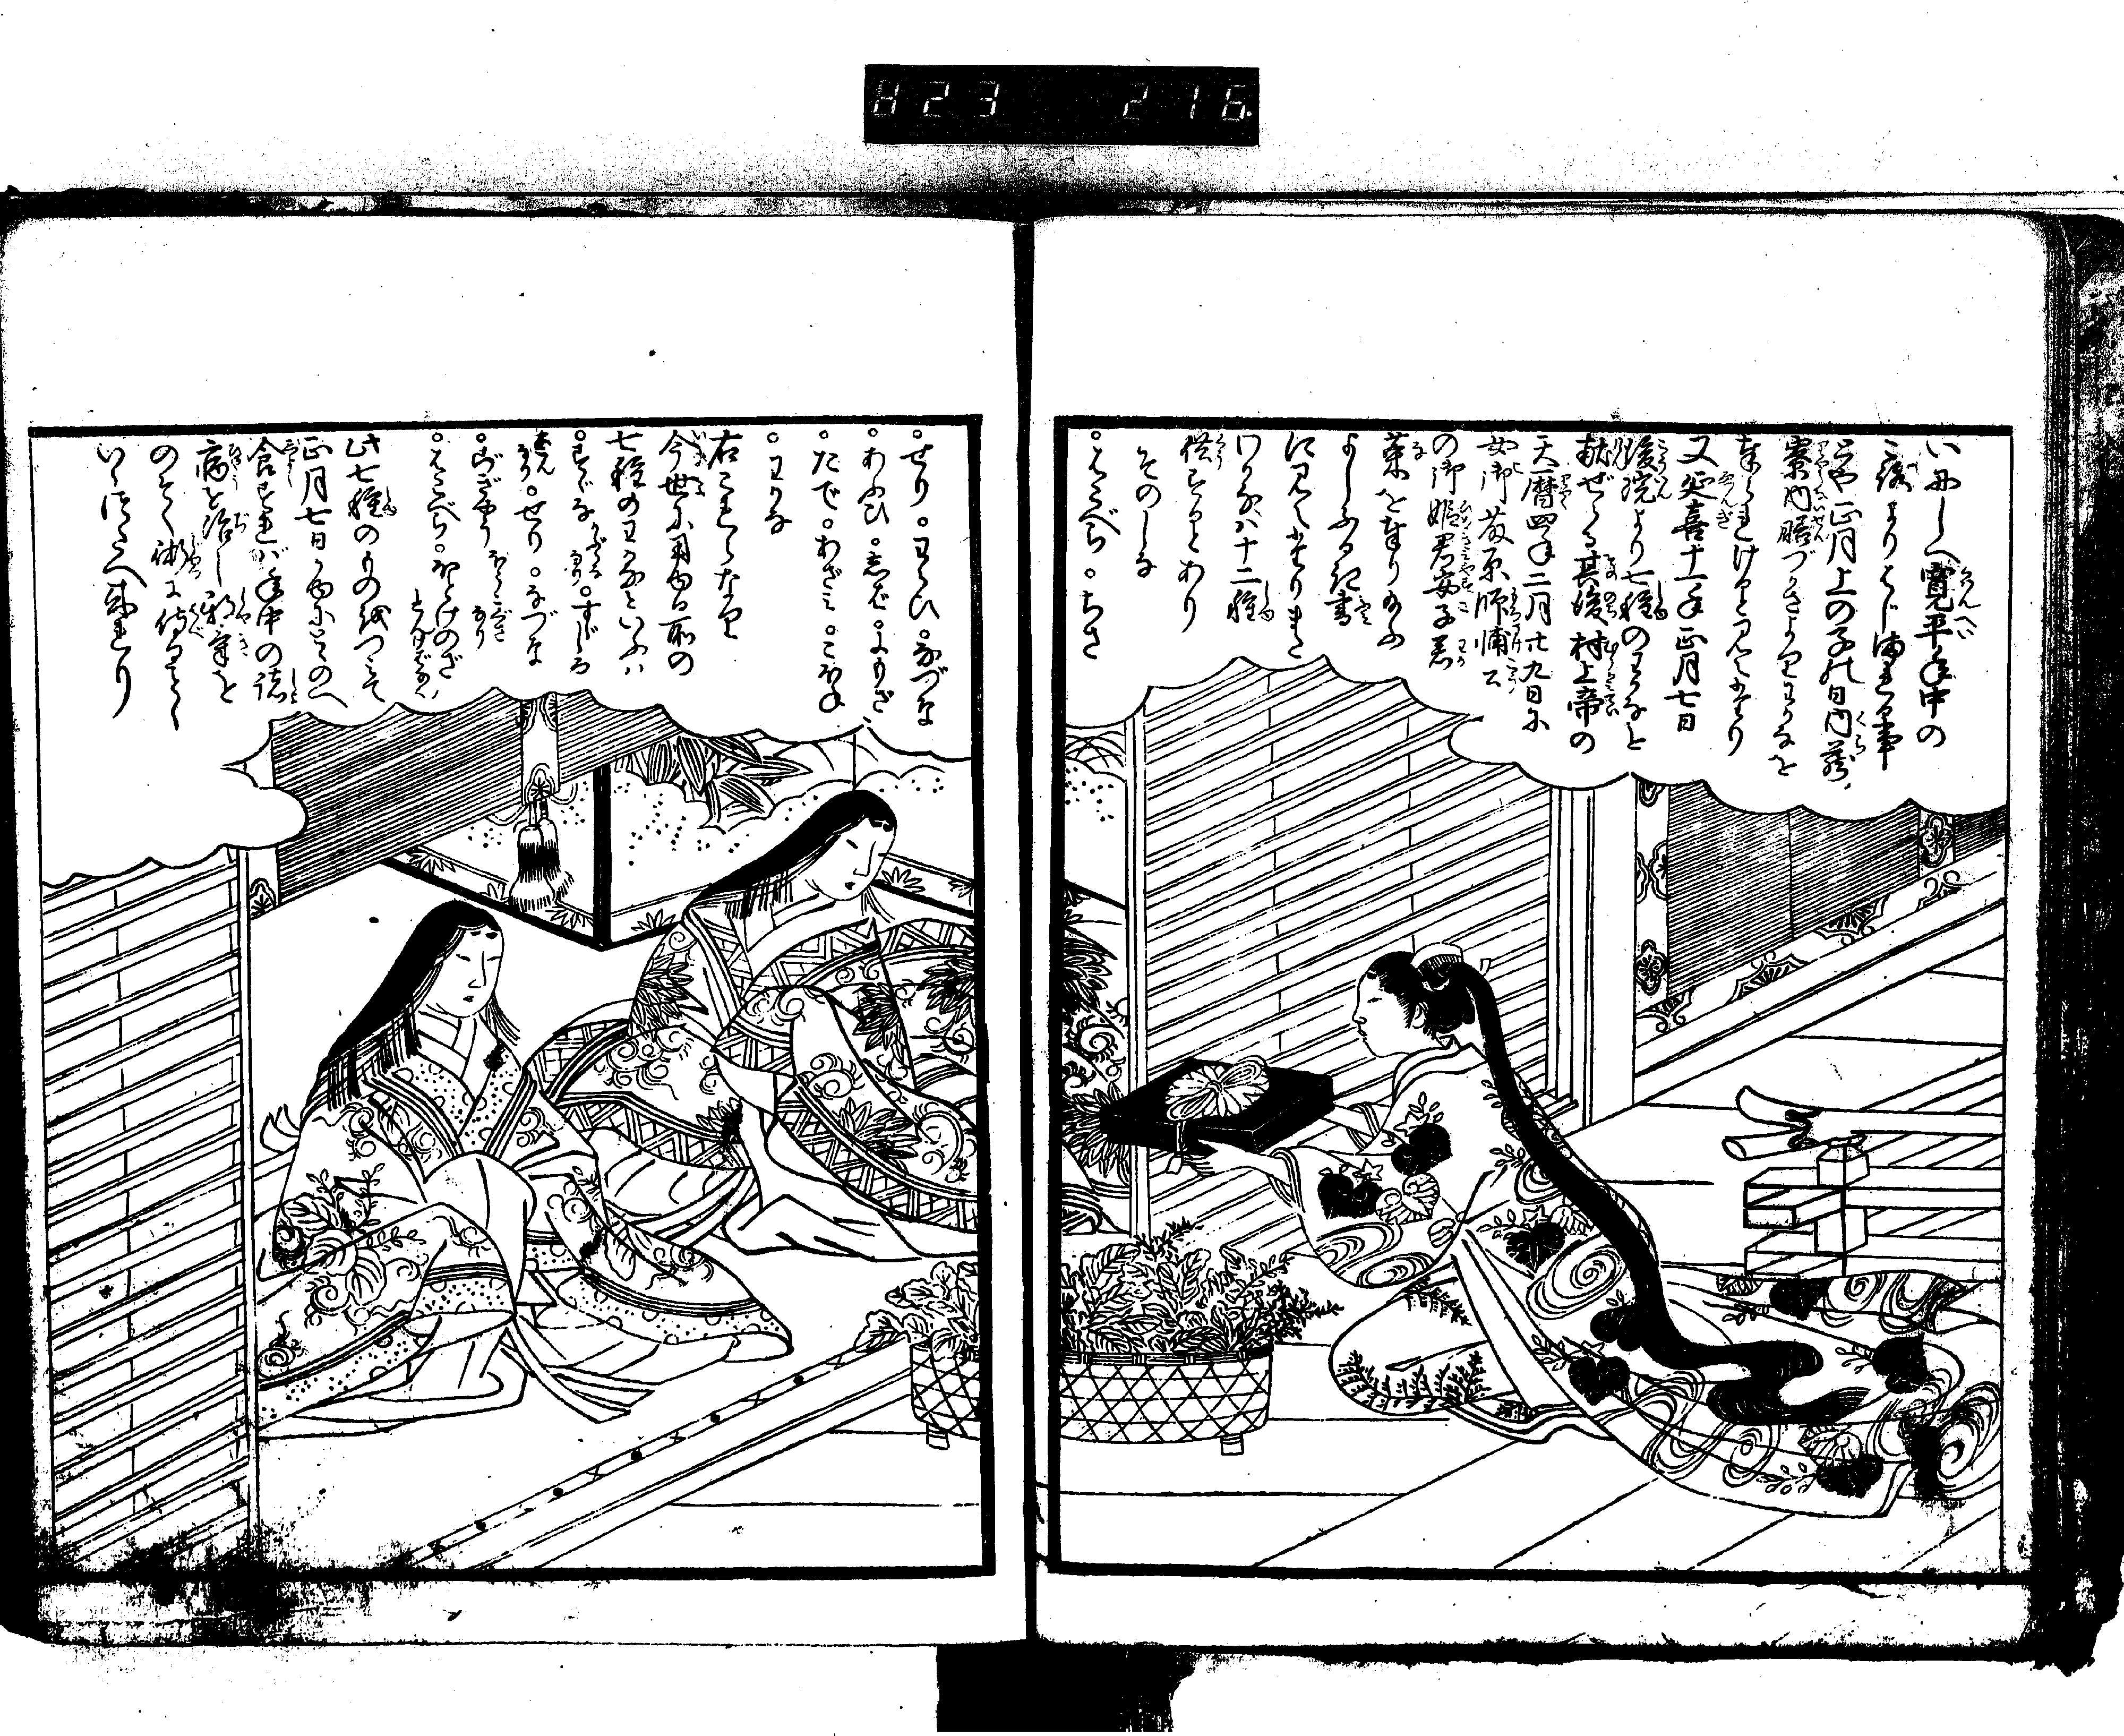 823 216
いにしへ寛平年中の
よりはじまる事
とや正月上の子の日内蔵
寮内膳づかさよりわかなを
奉られけると見えたり
又延喜十一年正月七日
後院より七種のわかなを
献ぜらる其後村上帝の
天暦四年二月廿九日に
女御藤原師輔公
の御姫君安子若
菜を奉り給ふ
よしふるき書
に見えたりまた
わかなハ十二種
供ずるとあり
そのしな
。はこべら。ちさ
。せり。わらひ。なづな
。あふひ。志ば。よもぎ
。たで。あざミ。こほね
。わかな
右これらなり
今世に用ゆる所の
七種のわかなといふハ
。すゞな。すゞしろ
。せり。なづな
。ごぎやう
。はこべら。ほとけのざ
此七種のものをつミて
正月七日
食すれバ年中の諸
病を治し邪気を
のぞく術に侍るとぞ
いひつたへ来れり